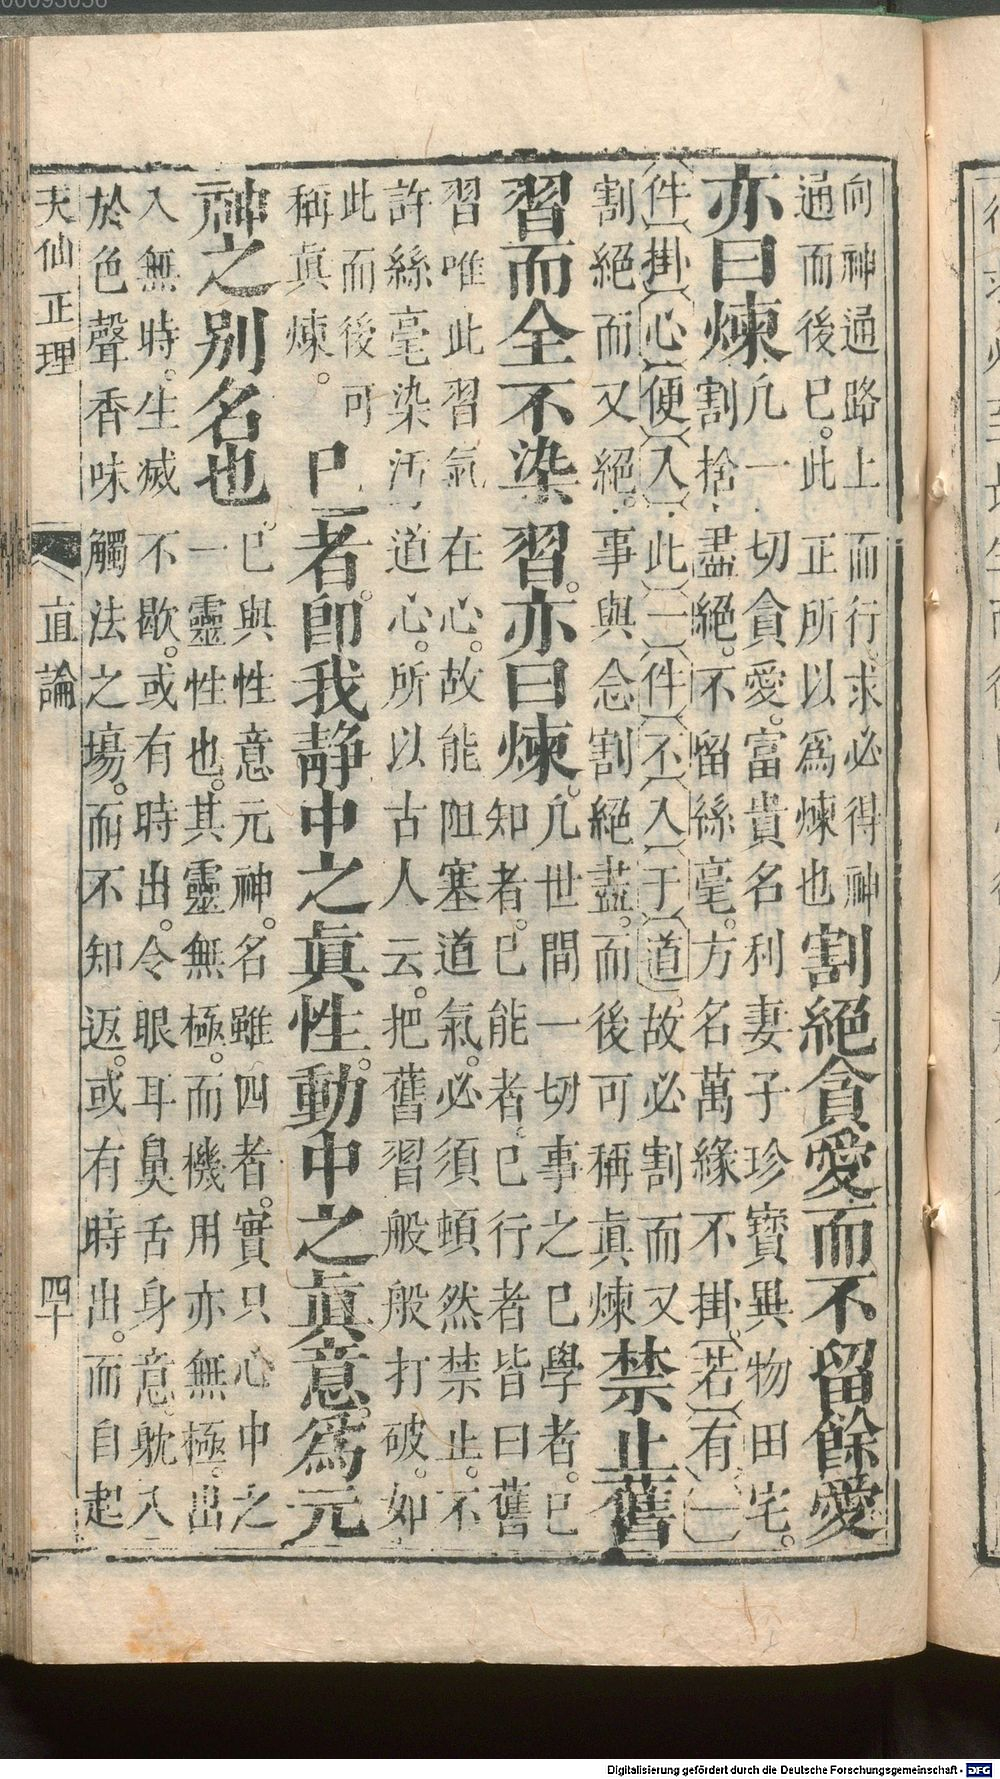 向神通路上而行求必得神
通而後已。此正所以爲煉也割絕貪愛而不留餘愛
亦曰煉凡一切貪愛。富貴名利妻子珍寶異物田宅。
割捨盡絕。不留絲毫。方名萬緣不掛。若有一
件掛心便入此一件不入于道。故必割而又
割絕而又絕。事與念割絕盡。而後可稱眞煉禁止舊
習而全不染習。亦曰煉。凡世間一切事之已學者。已
知者。已能者。已行者皆曰舊
習唯此習氣在心。故能阻塞道氣。必須頓然禁止。不
許絲毫染汚道心。所以古人云。把舊習般般打破。如
此而後可
稱眞煉。已者。卽我靜中之眞性。動中之眞意。爲元
神之別名也。已與性意元神。名雖四者。實只心中之
一靈性也。其靈無極。而機用亦無極。出
入無時。生滅不歇。或有時出。令眼耳鼻舌身意。躭入
於色聲香味觸法之塲。而不知返。或有時出。而自起
天仙正理
直論
四十
00093056
Digitalisierung gefördert durch die Deutsche Forschungsgemeinschaft - DFG